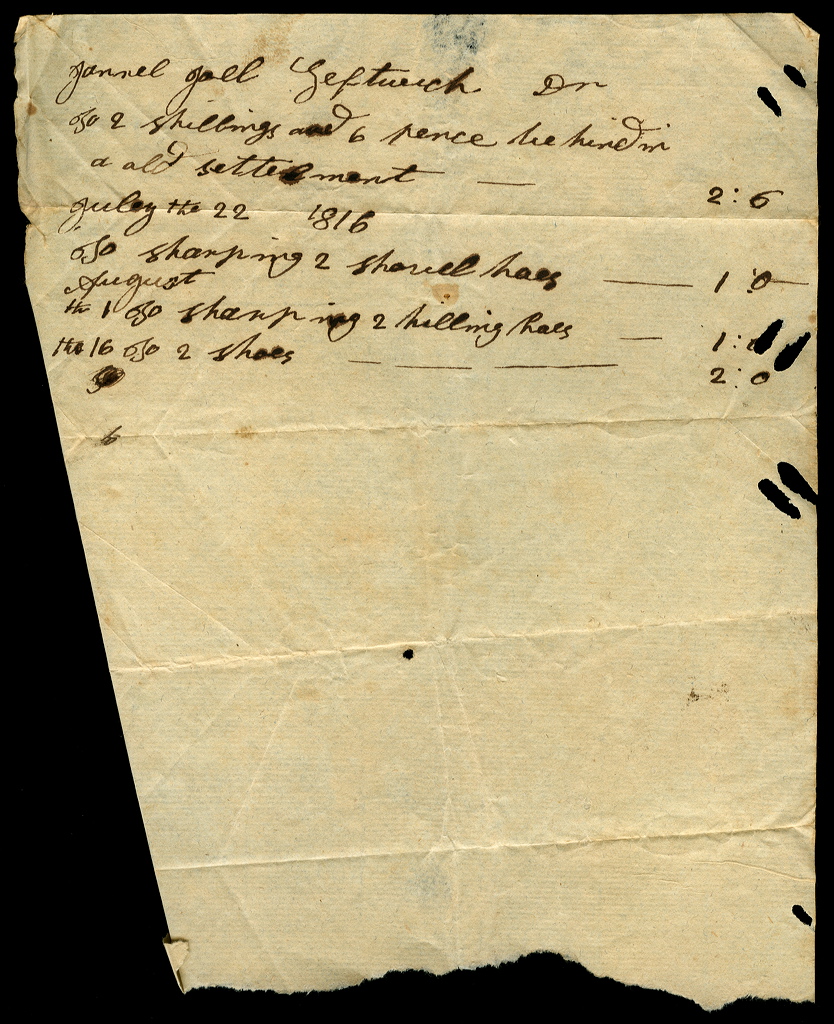 Jannel Joel Leftwich Dr
To 2 shillings and 6 pence behind in
a old settelment — 2:6
Juley the 22 1816
To sharping 2 shovel hoes — 1:0
August
the 1 To sharping 2 hilling hoes — 1:0
the 16 To 2 shoes — — — 2:0
6